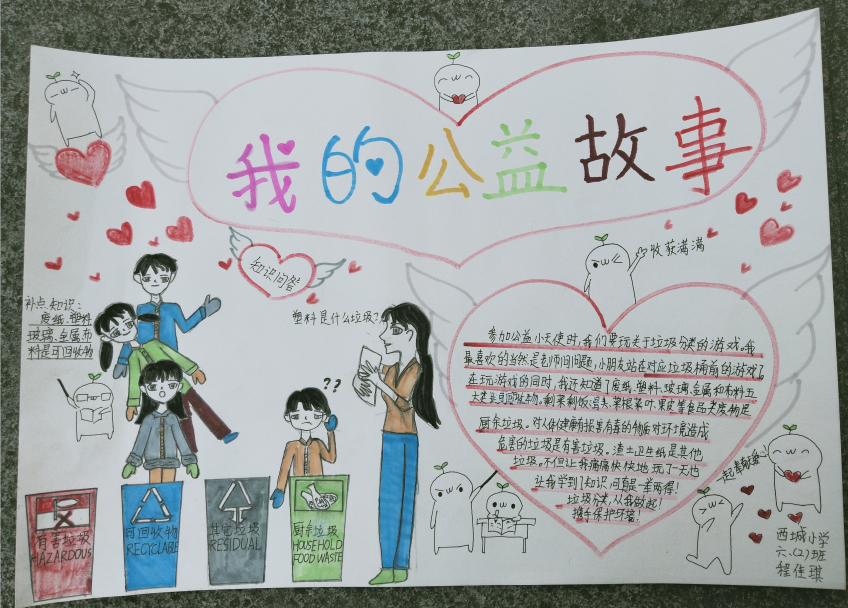 我的公益故事
知识问答
收获满满
补点知识:
废纸、塑料
玻璃、金属、布
料是可回收物
塑料是什么垃圾?
??
参加公益小天使时,我们要玩关于垃圾分类的游戏,我
最喜欢的当然是老师问问题,小朋友站在对应垃圾桶前的游戏了。
在玩游戏的同时,我还知道了废纸、塑料、玻璃、金属和布料五
大类是可回收物,剩菜剩饭、骨头、菜根菜叶、果皮等食品类废物是
厨余垃圾。对人体健康有损害有毒的物质对环境造成
危害的垃圾是有害垃圾。渣土卫生纸是其他
垃圾。不但让我痛痛快快地玩了一天也
让我学到了知识,简直是一举两得!
垃圾分类,从我做起!
携手保护环境!
一起奉献爱心
有害垃圾
HAZARDOUS
可回收物
RECYCLABLE
其它垃圾
RESIDUAL
厨余垃圾
HOUSEHOLD
FOOD WASTE
西城小学
六.(2)班
程佳琪